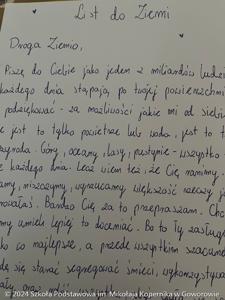 List do Ziemi
Droga Ziemio,
Piszę do Ciebie jako jedem z miliardów ludzi
każdego dnia stąpają, po Twojej powierzchni
podziękować - za możliwości jakie mi od siebie
e jest to tylko powietrze lub woda, jest to t
zyroda. Góry, oceany, lasy, pustynie - wszystko
każdego dnia. Lecz wiem też, że Cię ranimy.
amy, niszczymy, wyrzucamy, większość rzeczy j
nowałaś. Bardzo Cię za to przepraszam. Cho
my umieli lepiej to doceniać. Bo to Ty zasług
ko co najlepsze, a przede wszystkim szacunek
dę się starać segregować śmieci, wykorzystywa
© 2024 Szkoła Podstawowa im. Mikołaja Kopernika w Goworowie